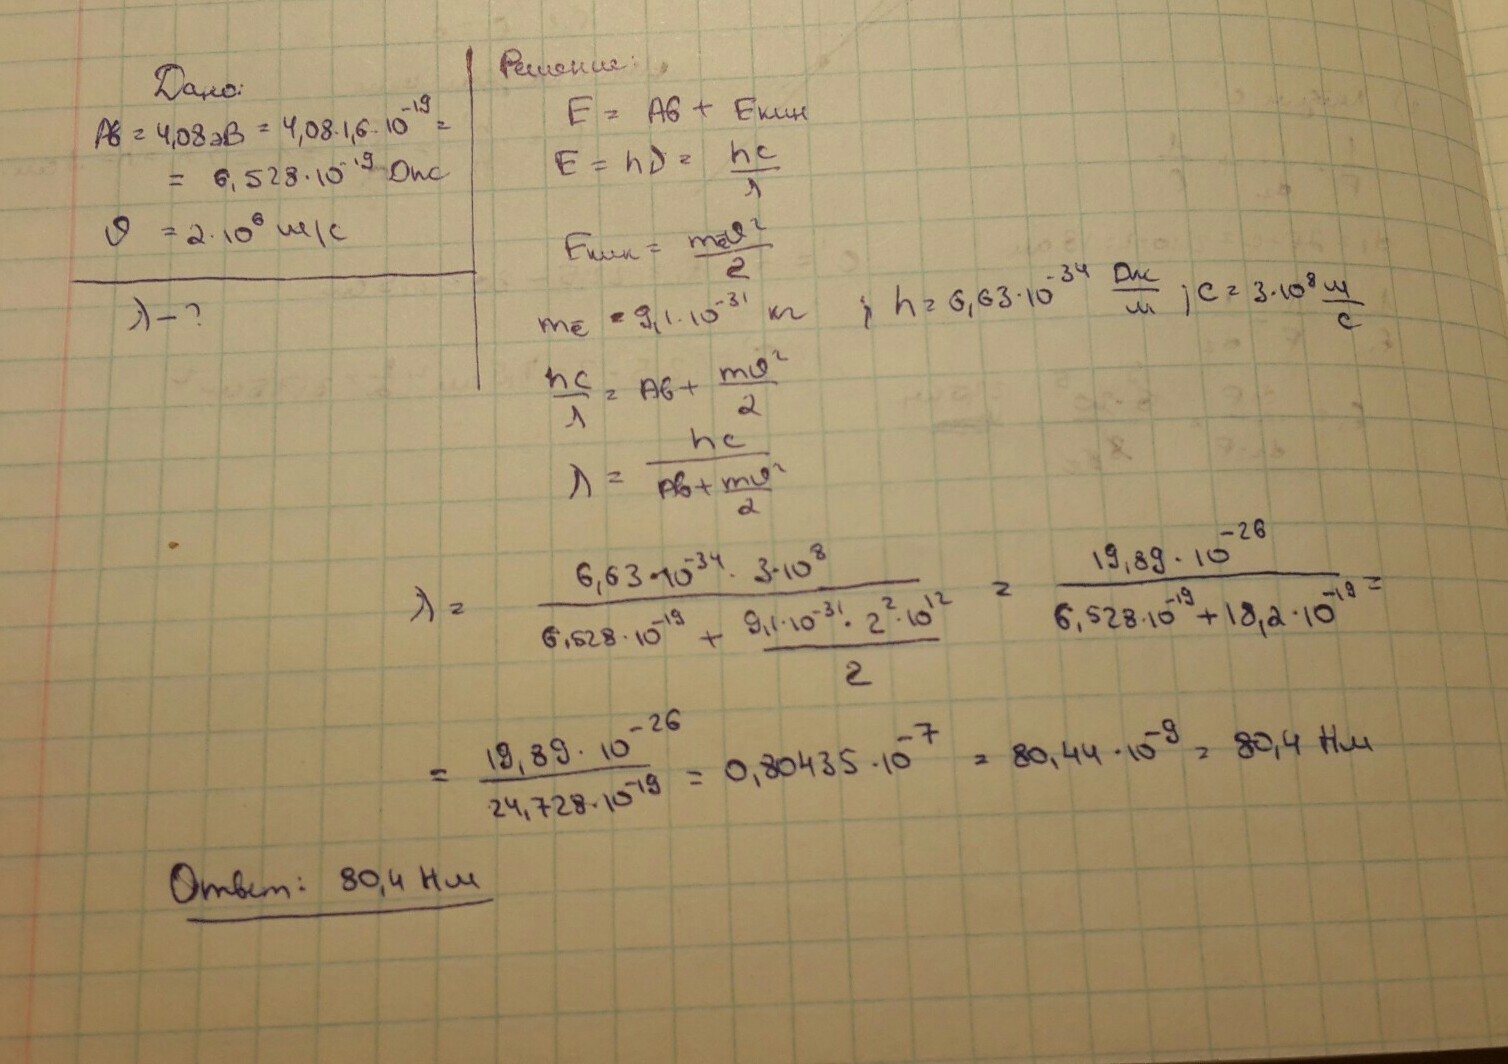 Дано:
Aв = 4,08 эВ = 4,08·1,6·10⁻¹⁹ =
= 6,528·10⁻¹⁹ Дж
υ = 2·10⁶ м/с
λ - ?
Решение:
E = Aв + Eкин
E = hν = hc/λ
Eкин = mēυ²/2
mē = 9,1·10⁻³¹ кг ; h = 6,63·10⁻³⁴ Дж/м ; c = 3·10⁸ м/с
hc/λ = Aв + mυ²/2
λ = hc/(Aв + mυ²/2)
λ = (6,63·10⁻³⁴ · 3·10⁸)/(6,528·10⁻¹⁹ + (9,1·10⁻³¹ · 2²·10¹²)/2) = (19,89·10⁻²⁶)/(6,528·10⁻¹⁹ + 18,2·10⁻¹⁹) =
= (19,89·10⁻²⁶)/(24,728·10⁻¹⁹) = 0,80435·10⁻⁷ = 80,44·10⁻⁹ = 80,4 Нм
Ответ: 80,4 Нм